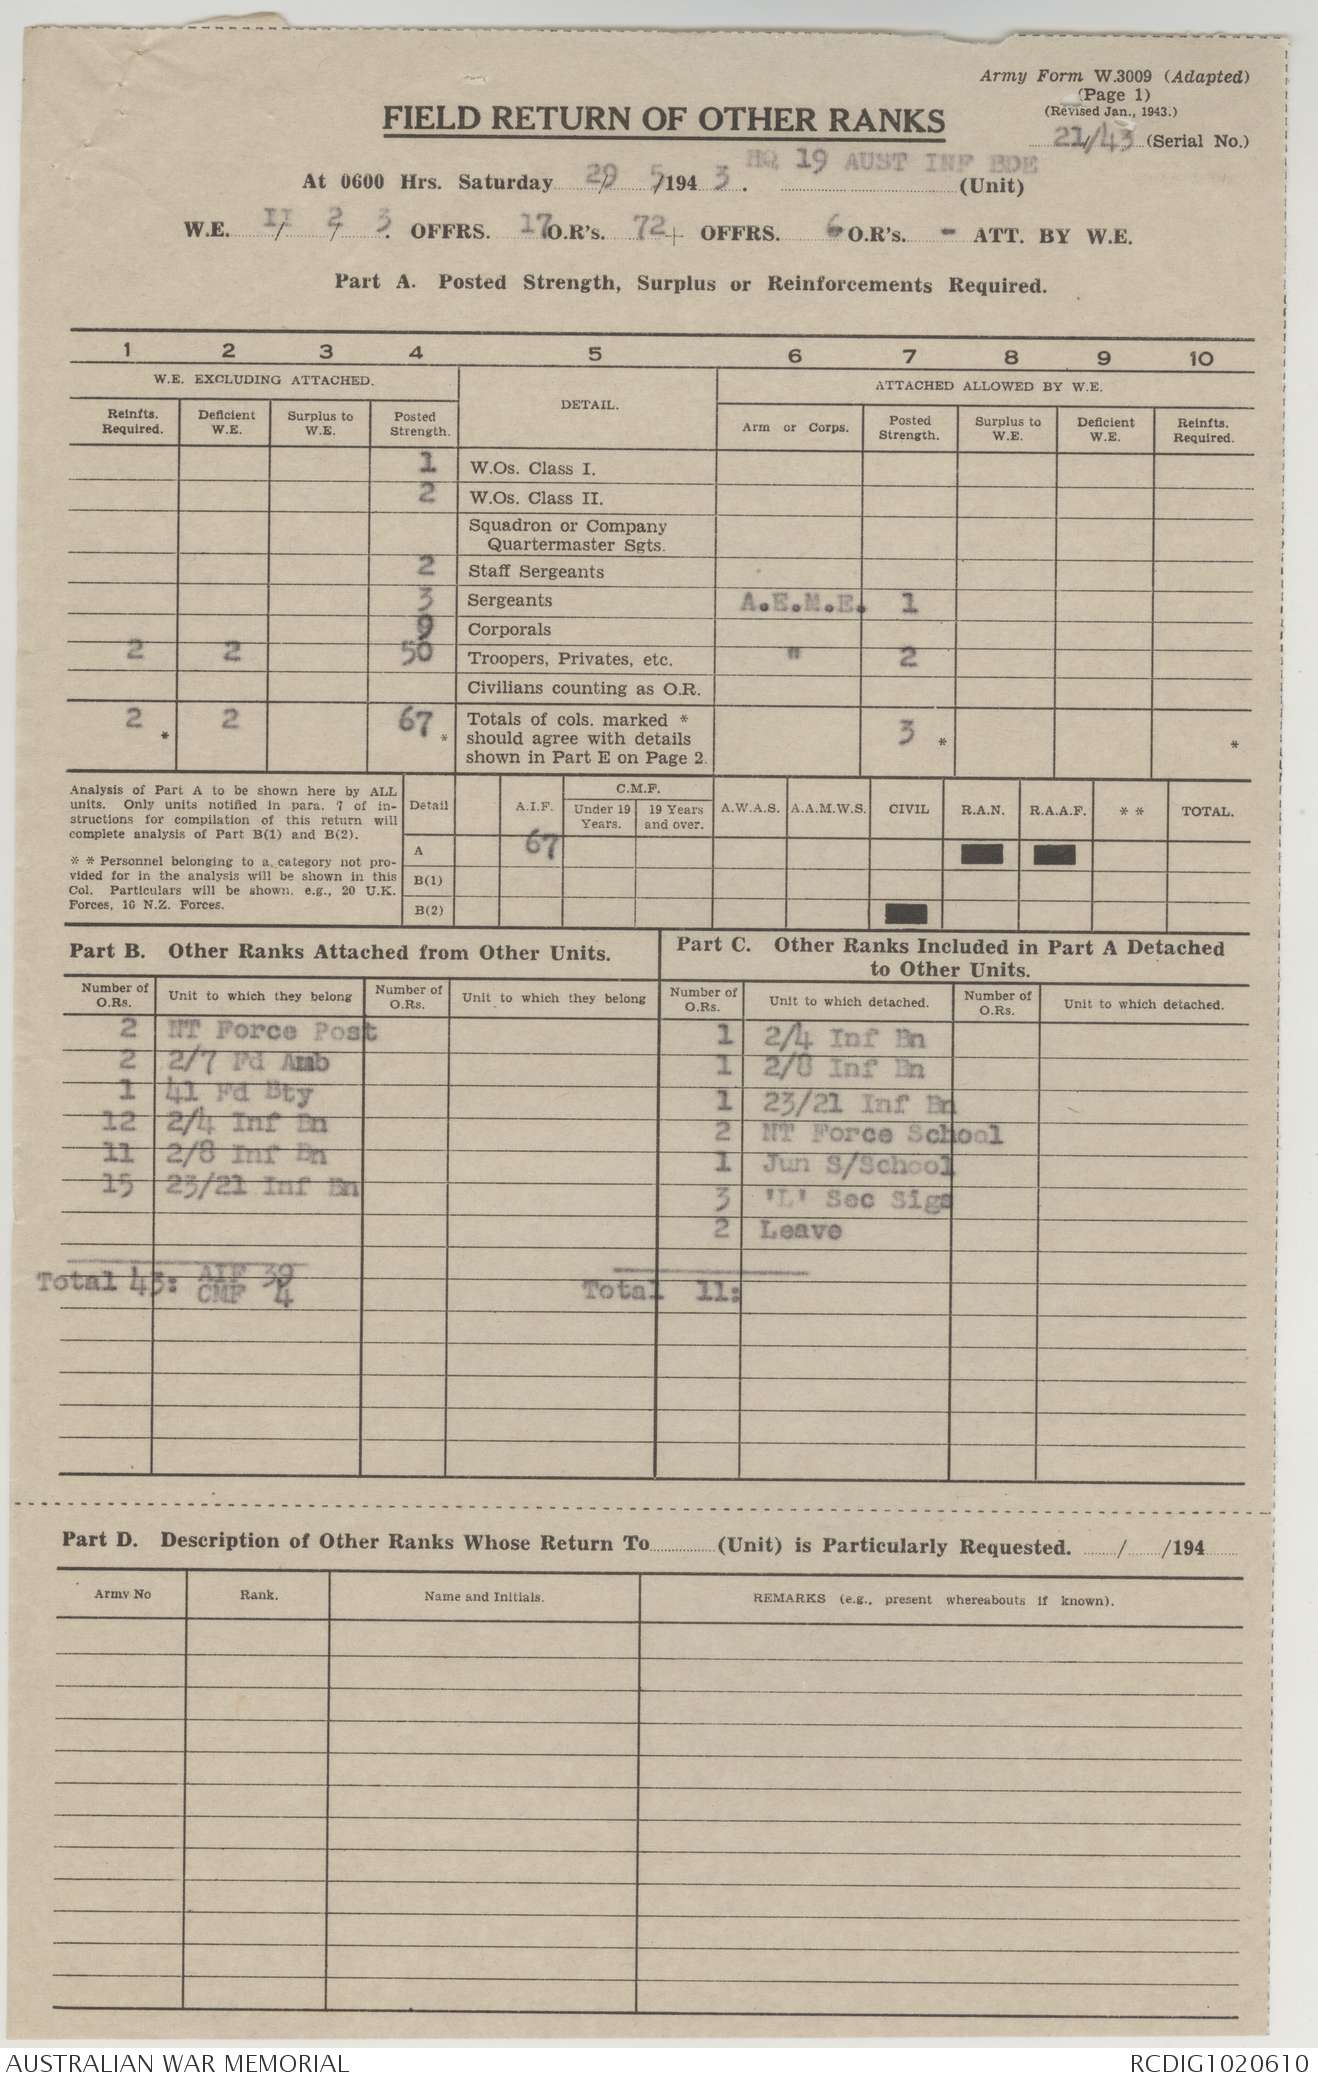 Army Form W.3009 (Adapted)
(Page 1)
(Revised Jan., 1943.)
21/43 (Serial No.)
FIELD RETURN OF OTHER RANKS
HQ 19 AUST INF BDE
At 0600 Hrs. Saturday 29/ 5/194 3. (Unit)
W.E. II/ 2/ 3. OFFRS. 17 O.R's. 72+ OFFRS. 6 O.R's. - ATT. BY W.E.
Part A. Posted Strength, Surplus or Reinforcements Required.
1 2 3 4 5 6 7 8 9 10
W.E. EXCLUDING ATTACHED. DETAIL. ATTACHED ALLOWED BY W.E.
Reinfts. Required. Deficient W.E. Surplus to W.E. Posted Strength. Arm or Corps. Posted Strength. Surplus to W.E. Deficient W.E. Reinfts. Required.
1 W.Os. Class I.
2 W.Os. Class II.
Squadron or Company
Quartermaster Sgts.
2 Staff Sergeants
3 Sergeants A.E.M.E. 1
9 Corporals
2 2 50 Troopers, Privates, etc. " 2
Civilians counting as O.R.
2 * 2 67 * Totals of cols. marked * 3 * *
should agree with details
shown in Part E on Page 2.
Analysis of Part A to be shown here by ALL
units. Only units notified in para. 7 of in-
structions for compilation of this return will
complete analysis of Part B(1) and B(2).
* * Personnel belonging to a category not pro-
vided for in the analysis will be shown in this
Col. Particulars will be shown. e.g., 20 U.K.
Forces, 16 N.Z. Forces.
Detail A.I.F. C.M.F. A.W.A.S. A.A.M.W.S. CIVIL R.A.N. R.A.A.F. * * TOTAL.
Under 19 Years. 19 Years and over.
A 67
B(1)
B(2)
Part B. Other Ranks Attached from Other Units.
Number of O.Rs. Unit to which they belong Number of O.Rs. Unit to which they belong
2 NT Force Post
2 2/7 Fd Amb
1 41 Fd Bty
12 2/4 Inf Bn
11 2/8 Inf Bn
15 23/21 Inf Bn
Total 43: AIF 39
CMF 4
Part C. Other Ranks Included in Part A Detached
to Other Units.
Number of O.Rs. Unit to which detached. Number of O.Rs. Unit to which detached.
1 2/4 Inf Bn
1 2/8 Inf Bn
1 23/21 Inf Bn
2 NT Force School
1 Jun S/School
3 'L' Sec Sigs
2 Leave
Total 11:
Part D. Description of Other Ranks Whose Return To (Unit) is Particularly Requested. / /194
Army No Rank. Name and Initials. REMARKS (e.g., present whereabouts if known).
AUSTRALIAN WAR MEMORIAL RCDIG1020610